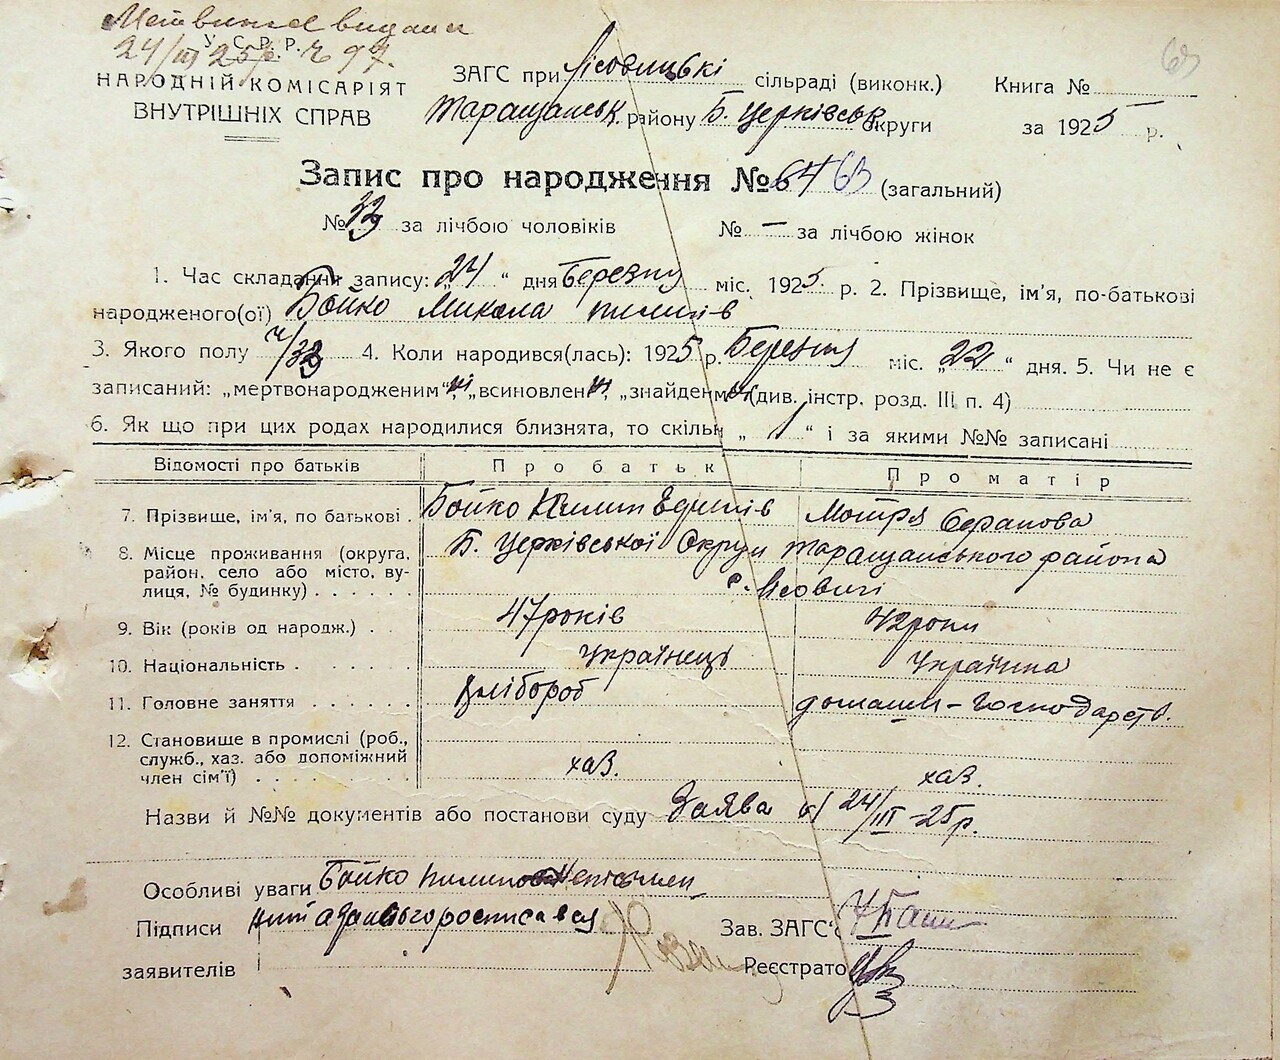 видана
24/III 25 р. № 97.
У. С. Р. Р.
НАРОДНІЙ КОМІСАРІЯТ
ВНУТРІШНІХ СПРАВ
ЗАГС при Лісовицькі сільраді (виконк.)
Таращанськ. району Б. Церківськ округи
Книга №
за 1925 р.
63
Запис про народження № 64 63 (загальний)
№ 33 за лічбою чоловіків № — за лічбою жінок
1. Час складання запису: „24“ дня Березня міс. 1925 р. 2. Прізвище, ім’я, по-батькові
народженого(ої) Бойко Микола Пилипів
3. Якого полу ч/33 4. Коли народився(лась): 1925 р. Березня міс. „22“ дня. 5. Чи не є
записаний: „мертвонародженим“, ні „всиновлен ні, „знайденим (див. інстр. розд. III п. 4)
6. Як що при цих родах народилися близнята, то скільк „1“ і за якими №№ записані
Відомості про батьків Про батьк Про матір
7. Прізвище, ім’я, по батькові . Бойко Пилип Мотря
8. Місце проживання (округа, Б. Церківської Округи Таращанського района
район, село або місто, ву- с. Лісовичі
лиця, № будинку) . . . . . .
9. Вік (років од народж.) . . 47 років 42 роки
10. Національність . . . . . . українець Українка
11. Головне заняття . . . . . . хлібороб домашн-господарств.
12. Становище в промислі (роб.,
служб., хаз. або допоміжний
член сім’ї) . . . . . . . . хаз. хаз.
Назви й №№ документів або постанови суду Заява 24/III-25 р.
Особливі уваги Бойко Пилип Неписьмен
Підписи росписався Зав. ЗАГС’о
заявителів Реєстрато